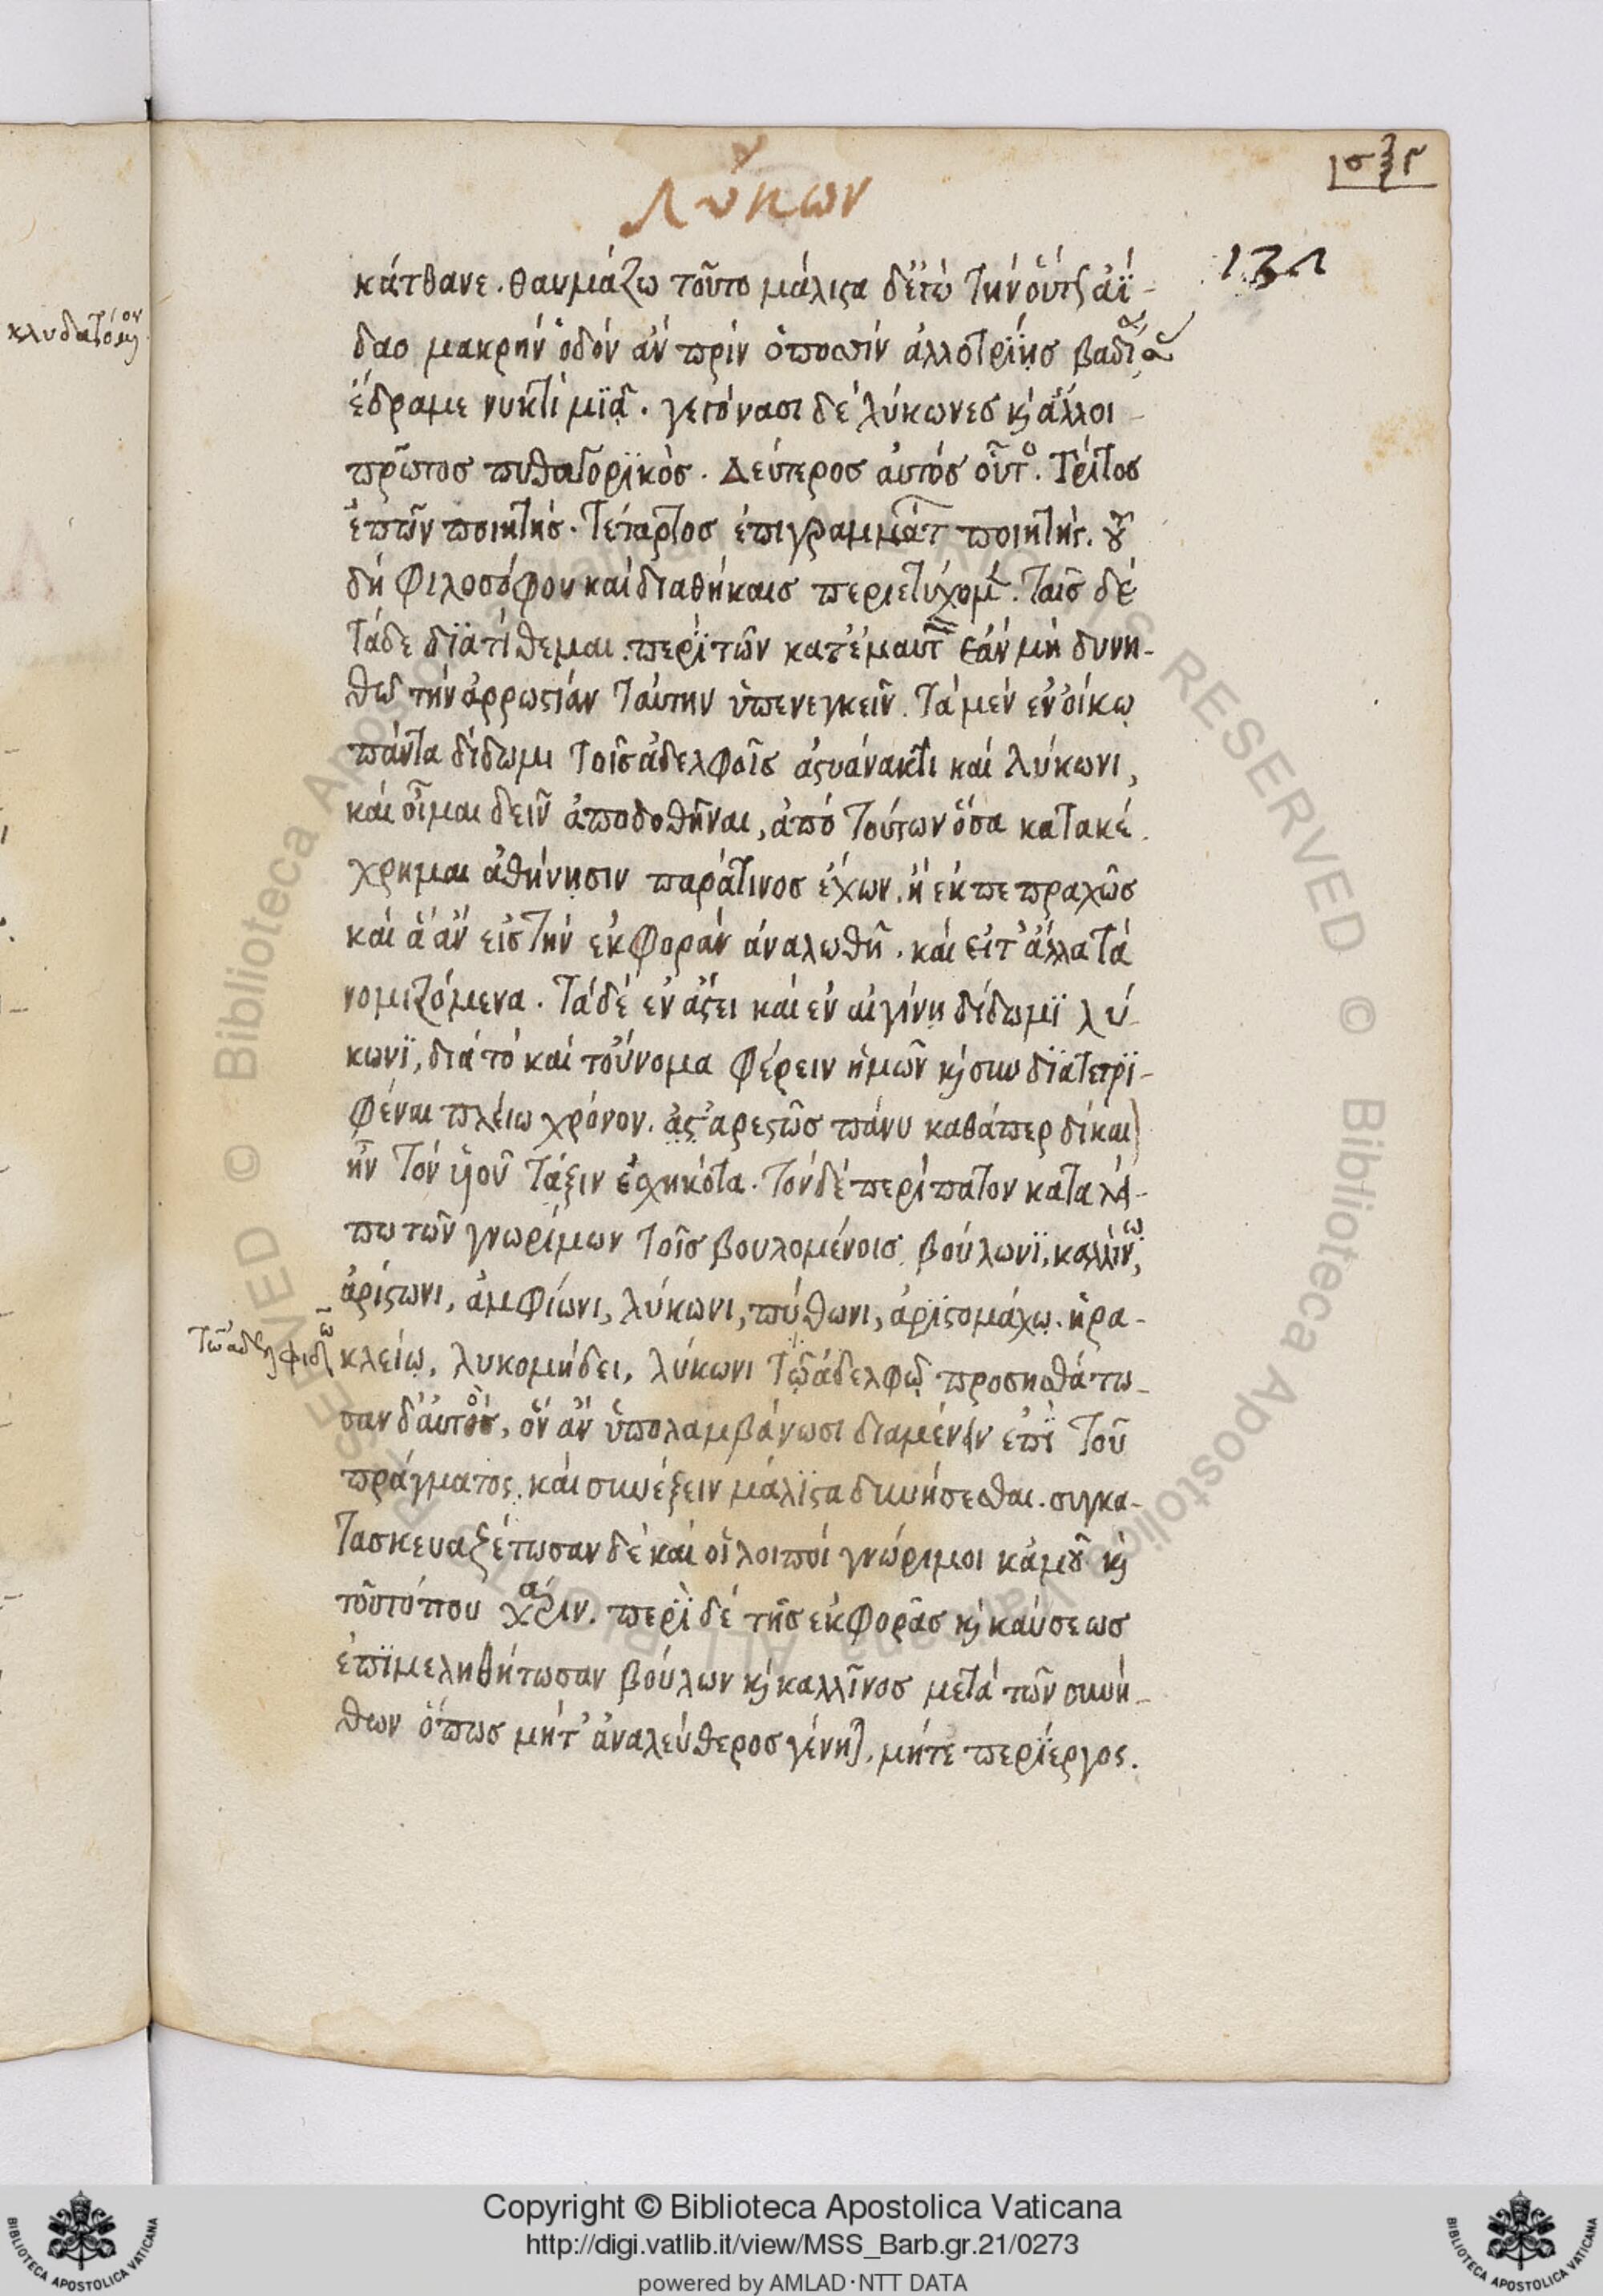 σξγ
Λύκων
131
κάτθανε. θαυμάζω τοῦτο μάλιστα δέ τῶ τήν οὕτως ἀΐ-
δαο μακρήν ὁδόν ἄν πρίν ὁ ποσίν ἀλλοτρίῃσ βαδίσασ
ἔδραμε νυκτί μιᾷ. γεγόνασι δέ λύκωνεσ καὶ ἄλλοι
πρῶτοσ πυθαγορϊκὸσ. Δεύτεροσ ἀυτόσ οὗτος. Τρίτοσ
ἐπῶν ποιητήσ. τέταρτοσ ἐπιγραμμάτων ποιητής. τοῦ
δή φιλοσόφου καί διαθήκαισ περιετύχομεν. ταῖσ δέ
τάδε διατίθεμαι. περί τῶν κατ' ἐμαυτὸν ἐάν μή δυνη-
θῶ τήν ἀρρωστίαν ταύτην ὑπενεγκεῖν. τά μέν ἐν οἴκῳ
πάντα δίδωμι τοῖσ ἀδελφοῖσ ἀστυάνακτι καί λύκωνι,
καί οἶμαι δεῖν ἀποδοθῆναι, ἀπό τούτων ὅσα κατακέ.
χρημαι ἀθήνησιν παρά τινοσ ἔχων. ἤ ἐκπεπραχῶσ
καί ἅ ἄν εἰσ τήν ἐκφοράν ἀναλωθῆ. καί εἰτ' ἄλλα τά
νομιζόμενα. τά δέ ἐν ἄστει καί ἐν αἰγίνῃ δίδωμϊ λύ-
κωνϊ, διά τό καί τοὔνομα φέρειν ἡμῶν καὶ συνδϊατετρϊ-
φέναι πλείω χρόνον. ἀστ' ἀρεστῶσ πάνυ καθάπερ δίκαιον
ἦν τόν ὑοῦ τάξιν ἐσχηκότα. τόν δέ περίπατον καταλεί-
πω τῶν γνωρίμων τοῖσ βουλομένοισ. βούλωνϊ, καλλίνω,
ἀρίστωνι, ἀμφίωνι, λύκωνι, πύθωνι, ἀρϊστομάχῳ. ἡρα-
τῶ ἀδελφιδῶ
κλείῳ, λυκομήδει, λύκωνι τῷ ἀδελφῷ προστησάτω-
σαν δ' αὐτοὶ, ὅν ἄν ὑπολαμβάνωσι διαμένειν ἐπϊ τοῦ
πράγματος. καί συνέξειν μάλϊστα δυνήσεσθαι. συγκα-
τασκευαζέτωσαν δέ καί οἱ λοιποί γνώριμοι κἀμοῦ καὶ
τοῦ τόπου χάριν. περϊ δέ τῆσ ἐκφορᾶσ καὶ καύσεωσ
ἐπϊμεληθήτωσαν βούλων καὶ καλλῖνοσ μετά τῶν συνή-
θων ὅπωσ μήτ' ἀναλεύθεροσ γένηται, μήτε περϊεργος.
Copyright © Biblioteca Apostolica Vaticana
http://digi.vatlib.it/view/MSS_Barb.gr.21/0273
powered by AMLAD·NTT DATA